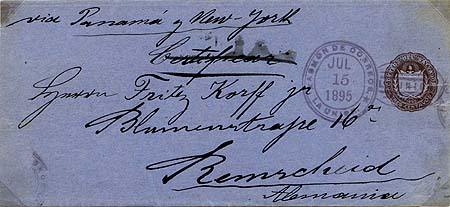 via Panamá y New-York
Certificar
Herrn Fritz Korff jr
Blumenstraße 16a
Remscheid
Alemania
JUL
15
1895